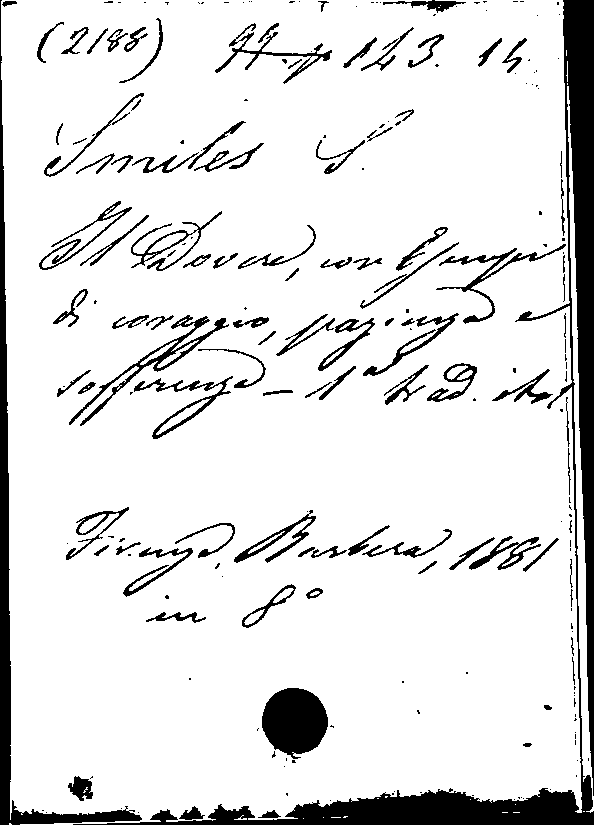 (2188) 143. 14.
Smiles S.
Il Dovere, con Esempi
di coraggio, pazienza e
sofferenza – 1ª trad. ital.
Firenze, Barbera, 1881
in 8°